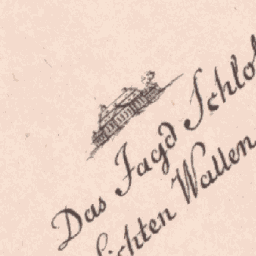 Das Jagd Schlo
lichten Wallen